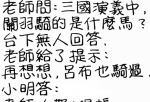 老師問:三國演義中,
關羽騎的是什麼馬?
台下無人回答.
老師給了提示:
再想想,呂布也騎過.
小明答: